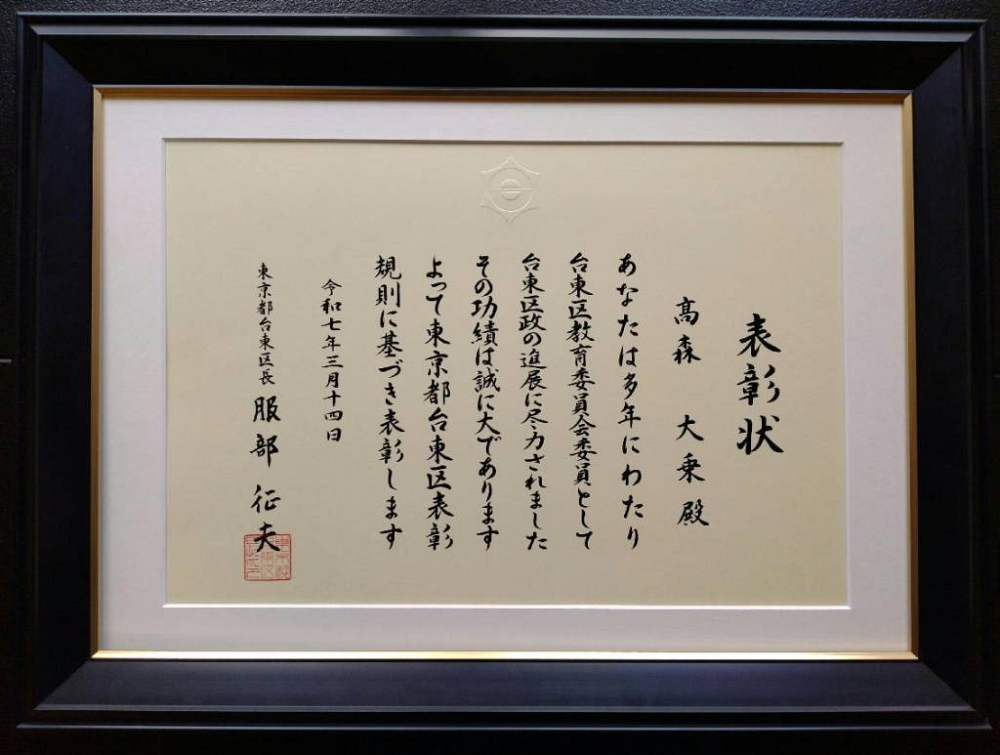 表彰状
髙森 大乗 殿
あなたは多年にわたり
台東区教育委員会委員として
台東区政の進展に尽力されました
その功績は誠に大であります
よって東京都台東区表彰
規則に基づき表彰します
令和七年三月十四日
東京都台東区長 服部 征夫